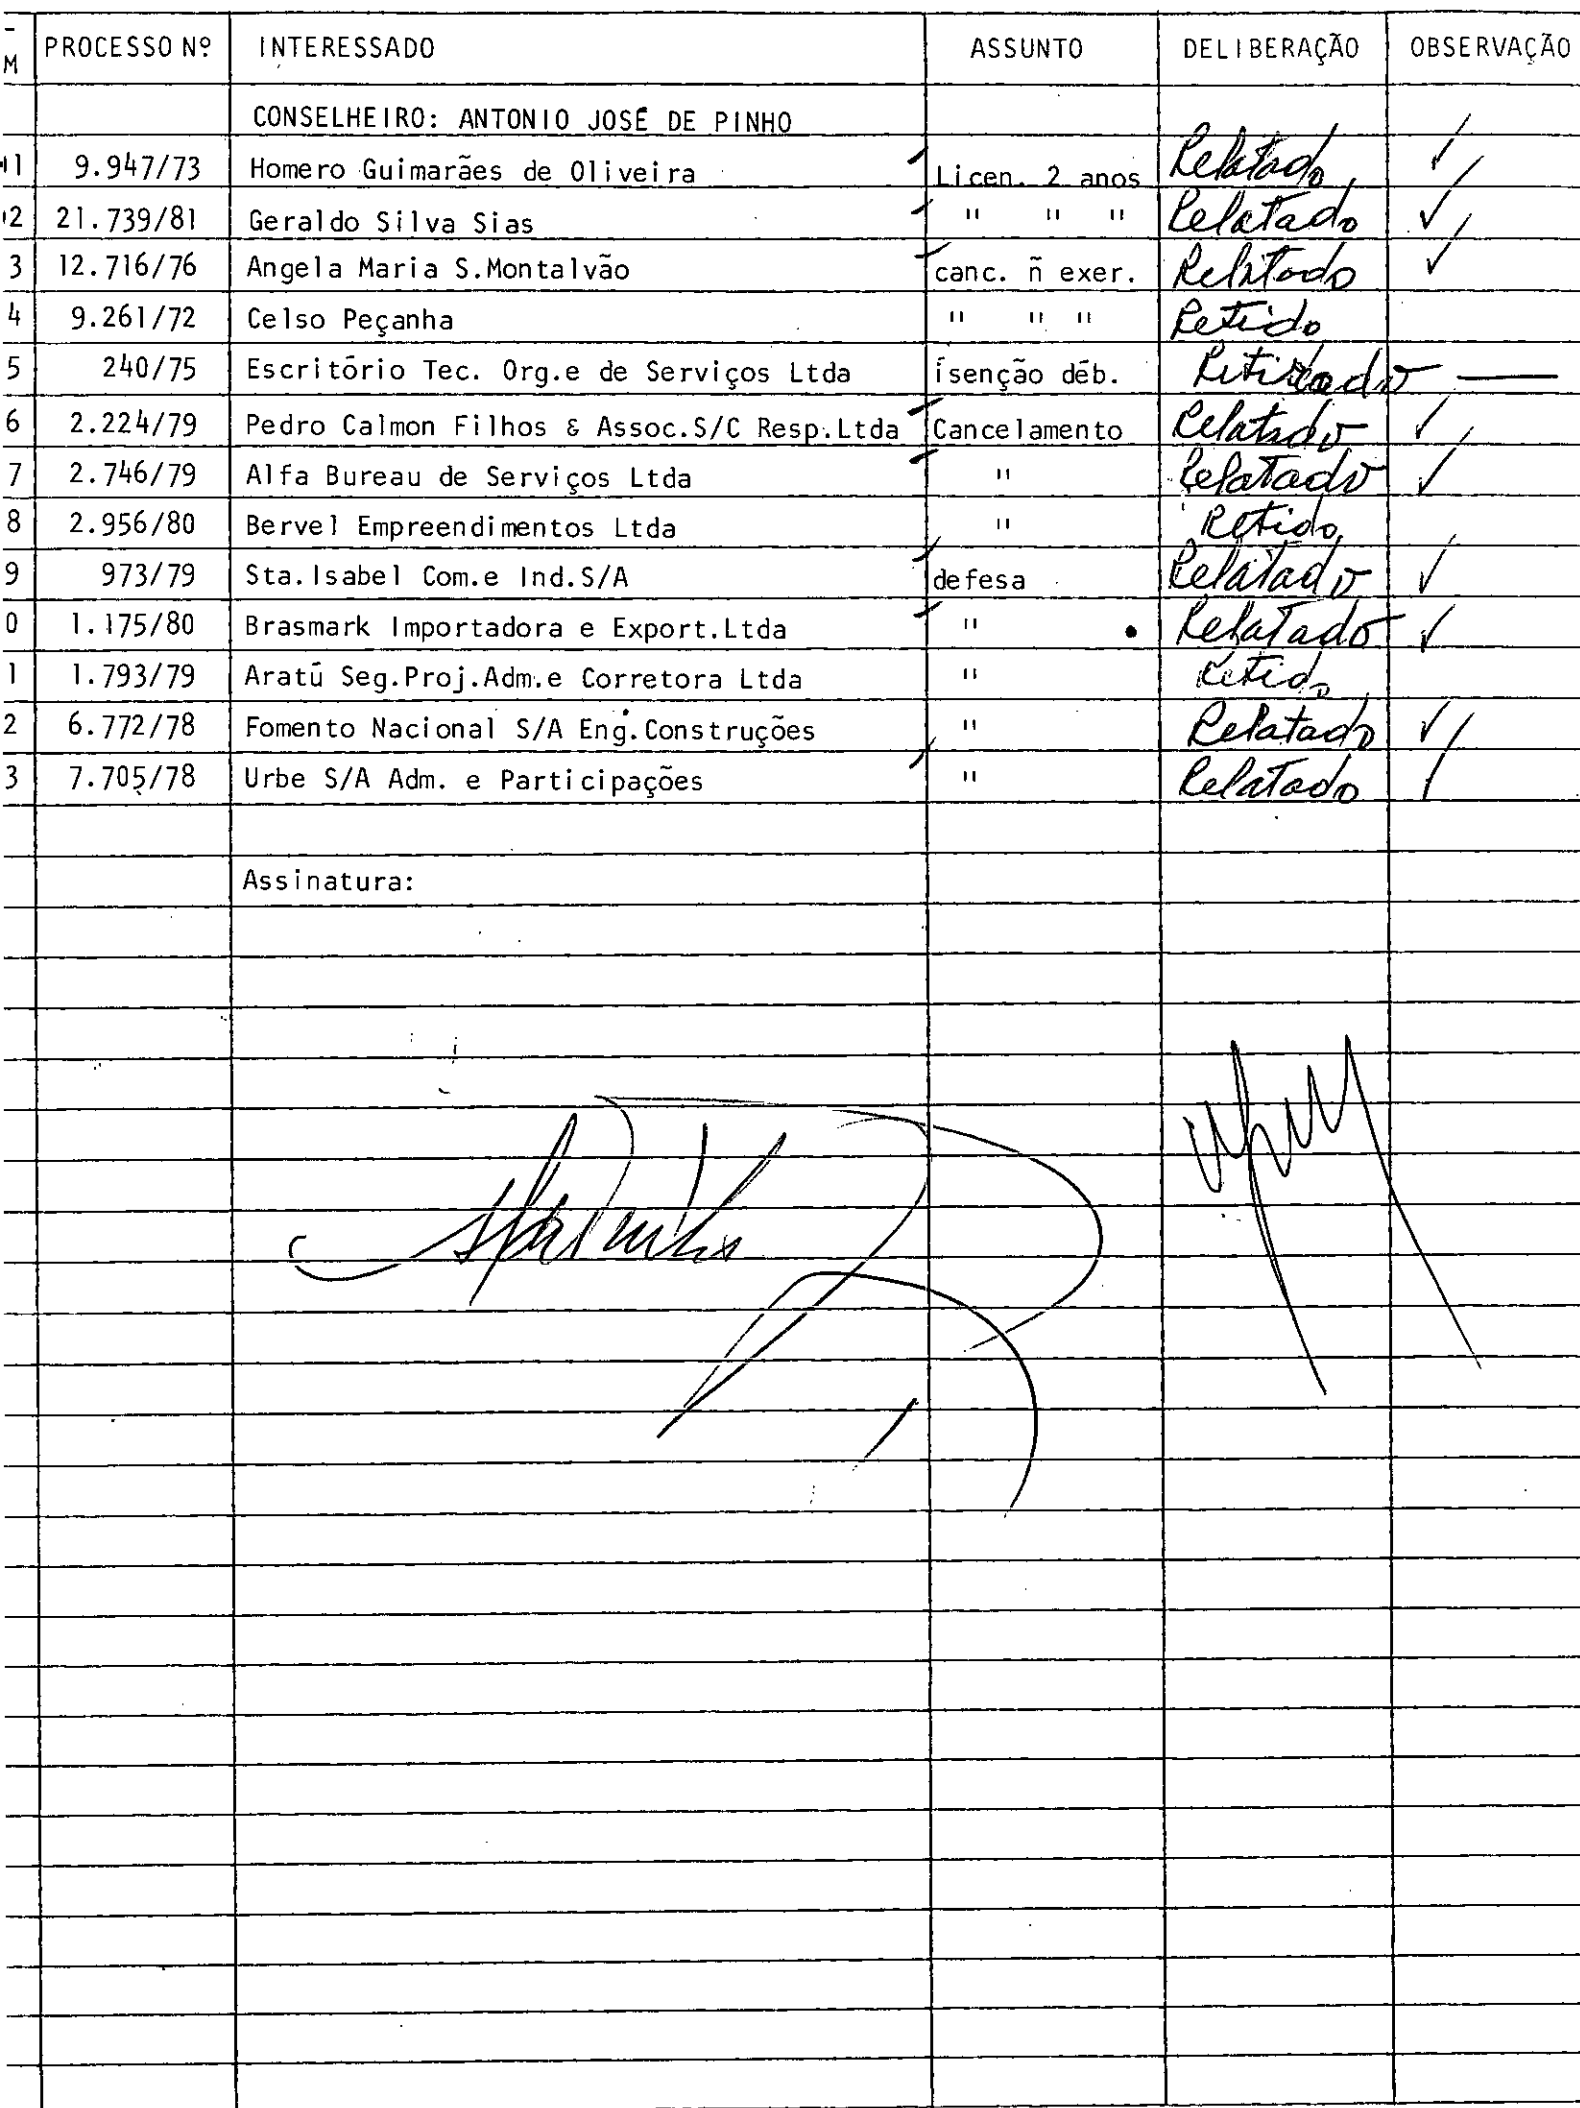 - M PROCESSO Nº INTERESSADO ASSUNTO DELIBERAÇÃO OBSERVAÇÃO
CONSELHEIRO: ANTONIO JOSÉ DE PINHO
01 9.947/73 Homero Guimarães de Oliveira Licen. 2 anos Relatado ✓
02 21.739/81 Geraldo Silva Sias " " " Relatado ✓
3 12.716/76 Angela Maria S.Montalvão canc. ñ exer. Relatado ✓
4 9.261/72 Celso Peçanha " " " Retido
5 240/75 Escritório Tec. Org.e de Serviços Ltda isenção déb. Retirado —
6 2.224/79 Pedro Calmon Filhos & Assoc.S/C Resp.Ltda Cancelamento Relatado ✓
7 2.746/79 Alfa Bureau de Serviços Ltda " Relatado ✓
8 2.956/80 Bervel Empreendimentos Ltda " Retido
9 973/79 Sta.Isabel Com.e Ind.S/A defesa Relatado ✓
0 1.175/80 Brasmark Importadora e Export.Ltda " Relatado ✓
1 1.793/79 Aratú Seg.Proj.Adm.e Corretora Ltda " Retido
2 6.772/78 Fomento Nacional S/A Eng.Construções " Relatado ✓
3 7.705/78 Urbe S/A Adm. e Participações " Relatado ✓
Assinatura: